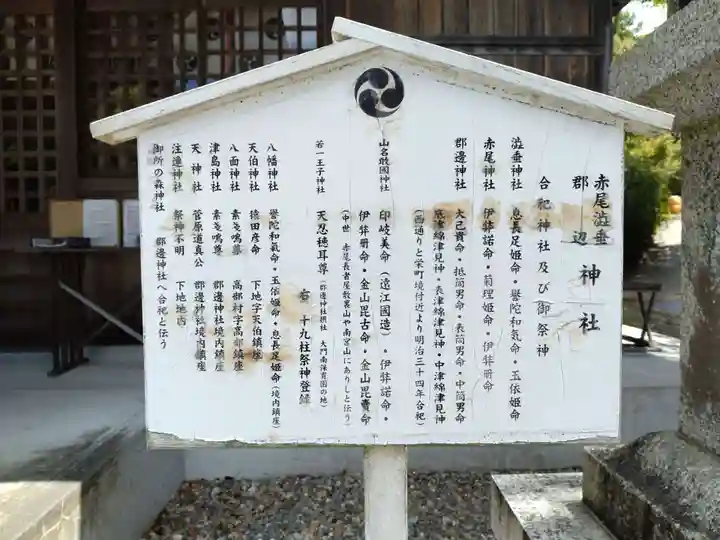 赤尾澁垂
郡辺神社
合祀神社及び御祭神
澁垂神社 息長足姫命・誉陀和氣命・玉依姫命
赤尾神社 伊弉諾命・菊理姫命・伊弉冊命
郡邊神社 大己貴命・抵筒男命・表筒男命・中筒男命
底津綿津見神・表津綿津見神・中津綿津見神
(西通りと栄町境付近より明治三十四年合祀)
山名敢國神社 印岐美命(遠江國造)・伊弉諾命・
伊弉冊命・金山毘古命・金山毘賣命
(中世 赤尾長者屋敷裏山や南宮山にありしと伝う)
若一王子神社 天忍穂耳尊(郡邊神社摂社 大門南保育園の地)
右 十九柱祭神登録
八幡神社 誉陀和氣命・玉依姫命・息長足姫命(境内鎮座)
天伯神社 猿田彦命 下地字天伯鎮座
八面神社 素戔鳴尊 高部村字高部鎮座
津島神社 素戔鳴尊 郡邊神社境内鎮座
天神社 菅原道真公 郡邊神社境内鎮座
注連神社 祭神不明 下地地内
御所の森神社 郡邊神社へ合祀と伝う